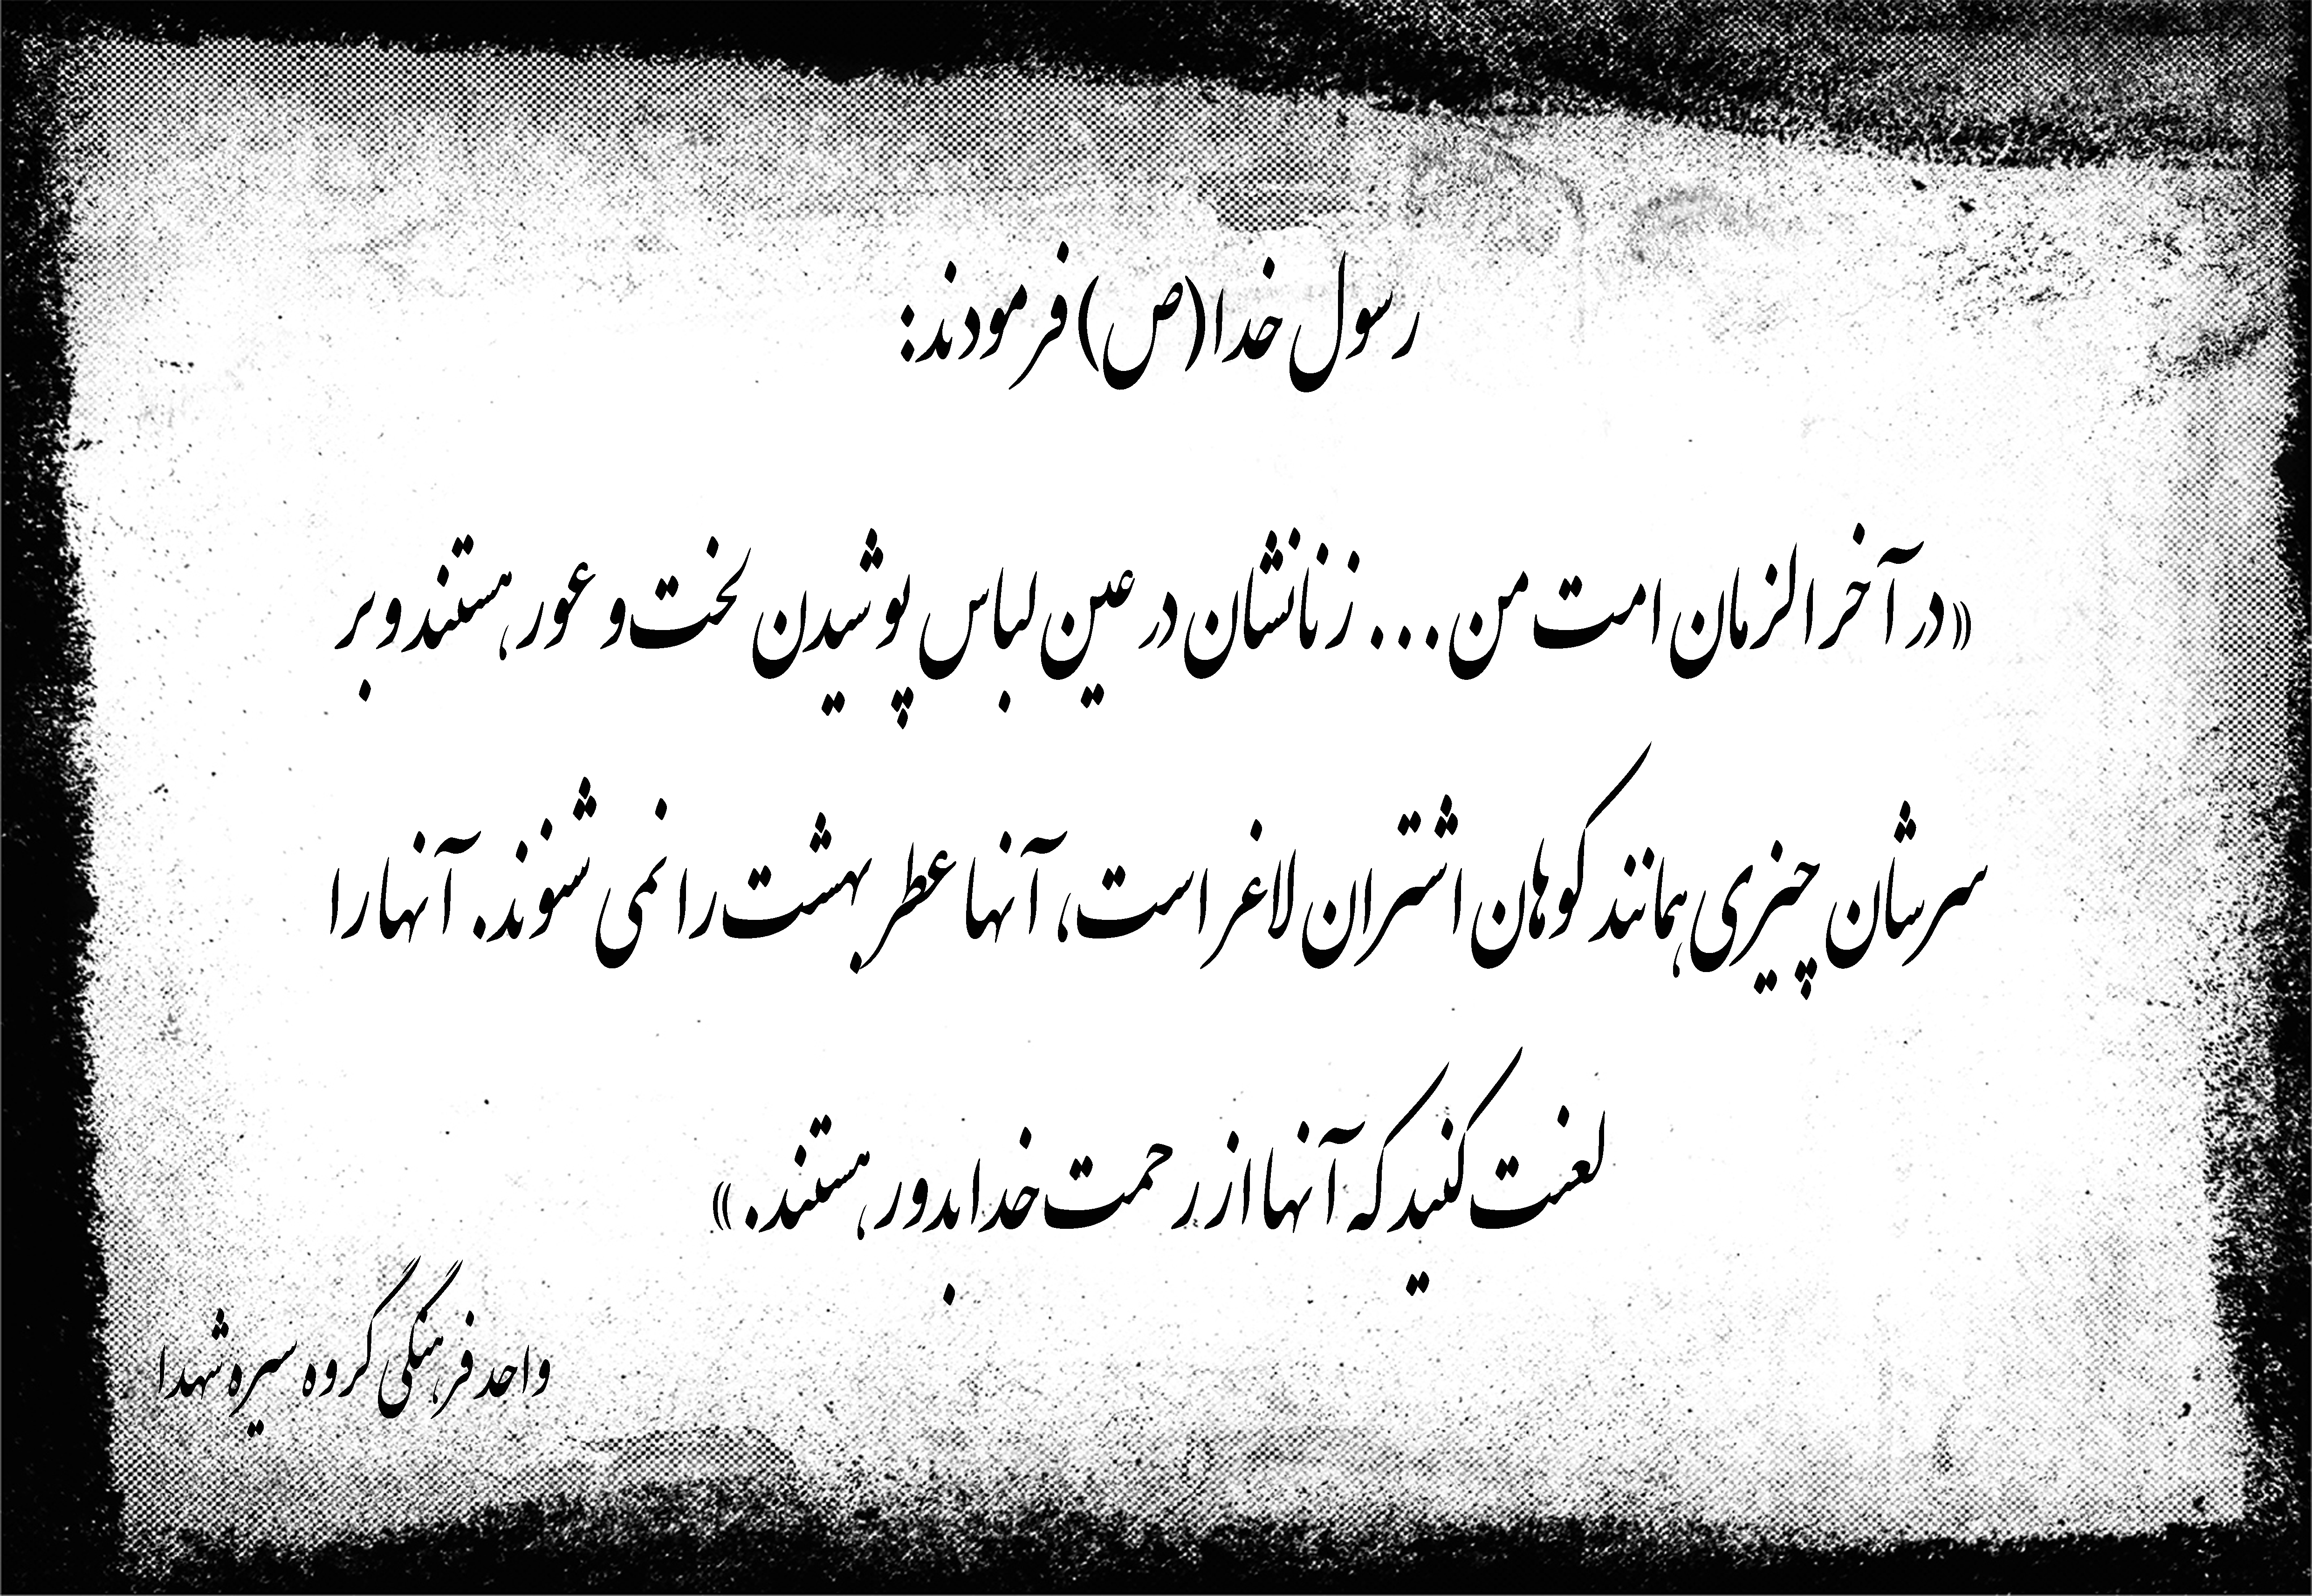 رسول خدا(ص) فرمودند:
«در آخر الزمان امت من... زنانشان در عین لباس پوشیدن لخت و عور هستند و بر
سرشان چیزی همانند کوهان اشتران لاغر است، آنها عطر بهشت را نمی شنوند. آنها را
لعنت کنید که آنها از رحمت خدا بدور هستند.»
واحد فرهنگی گروه سیره شهدا